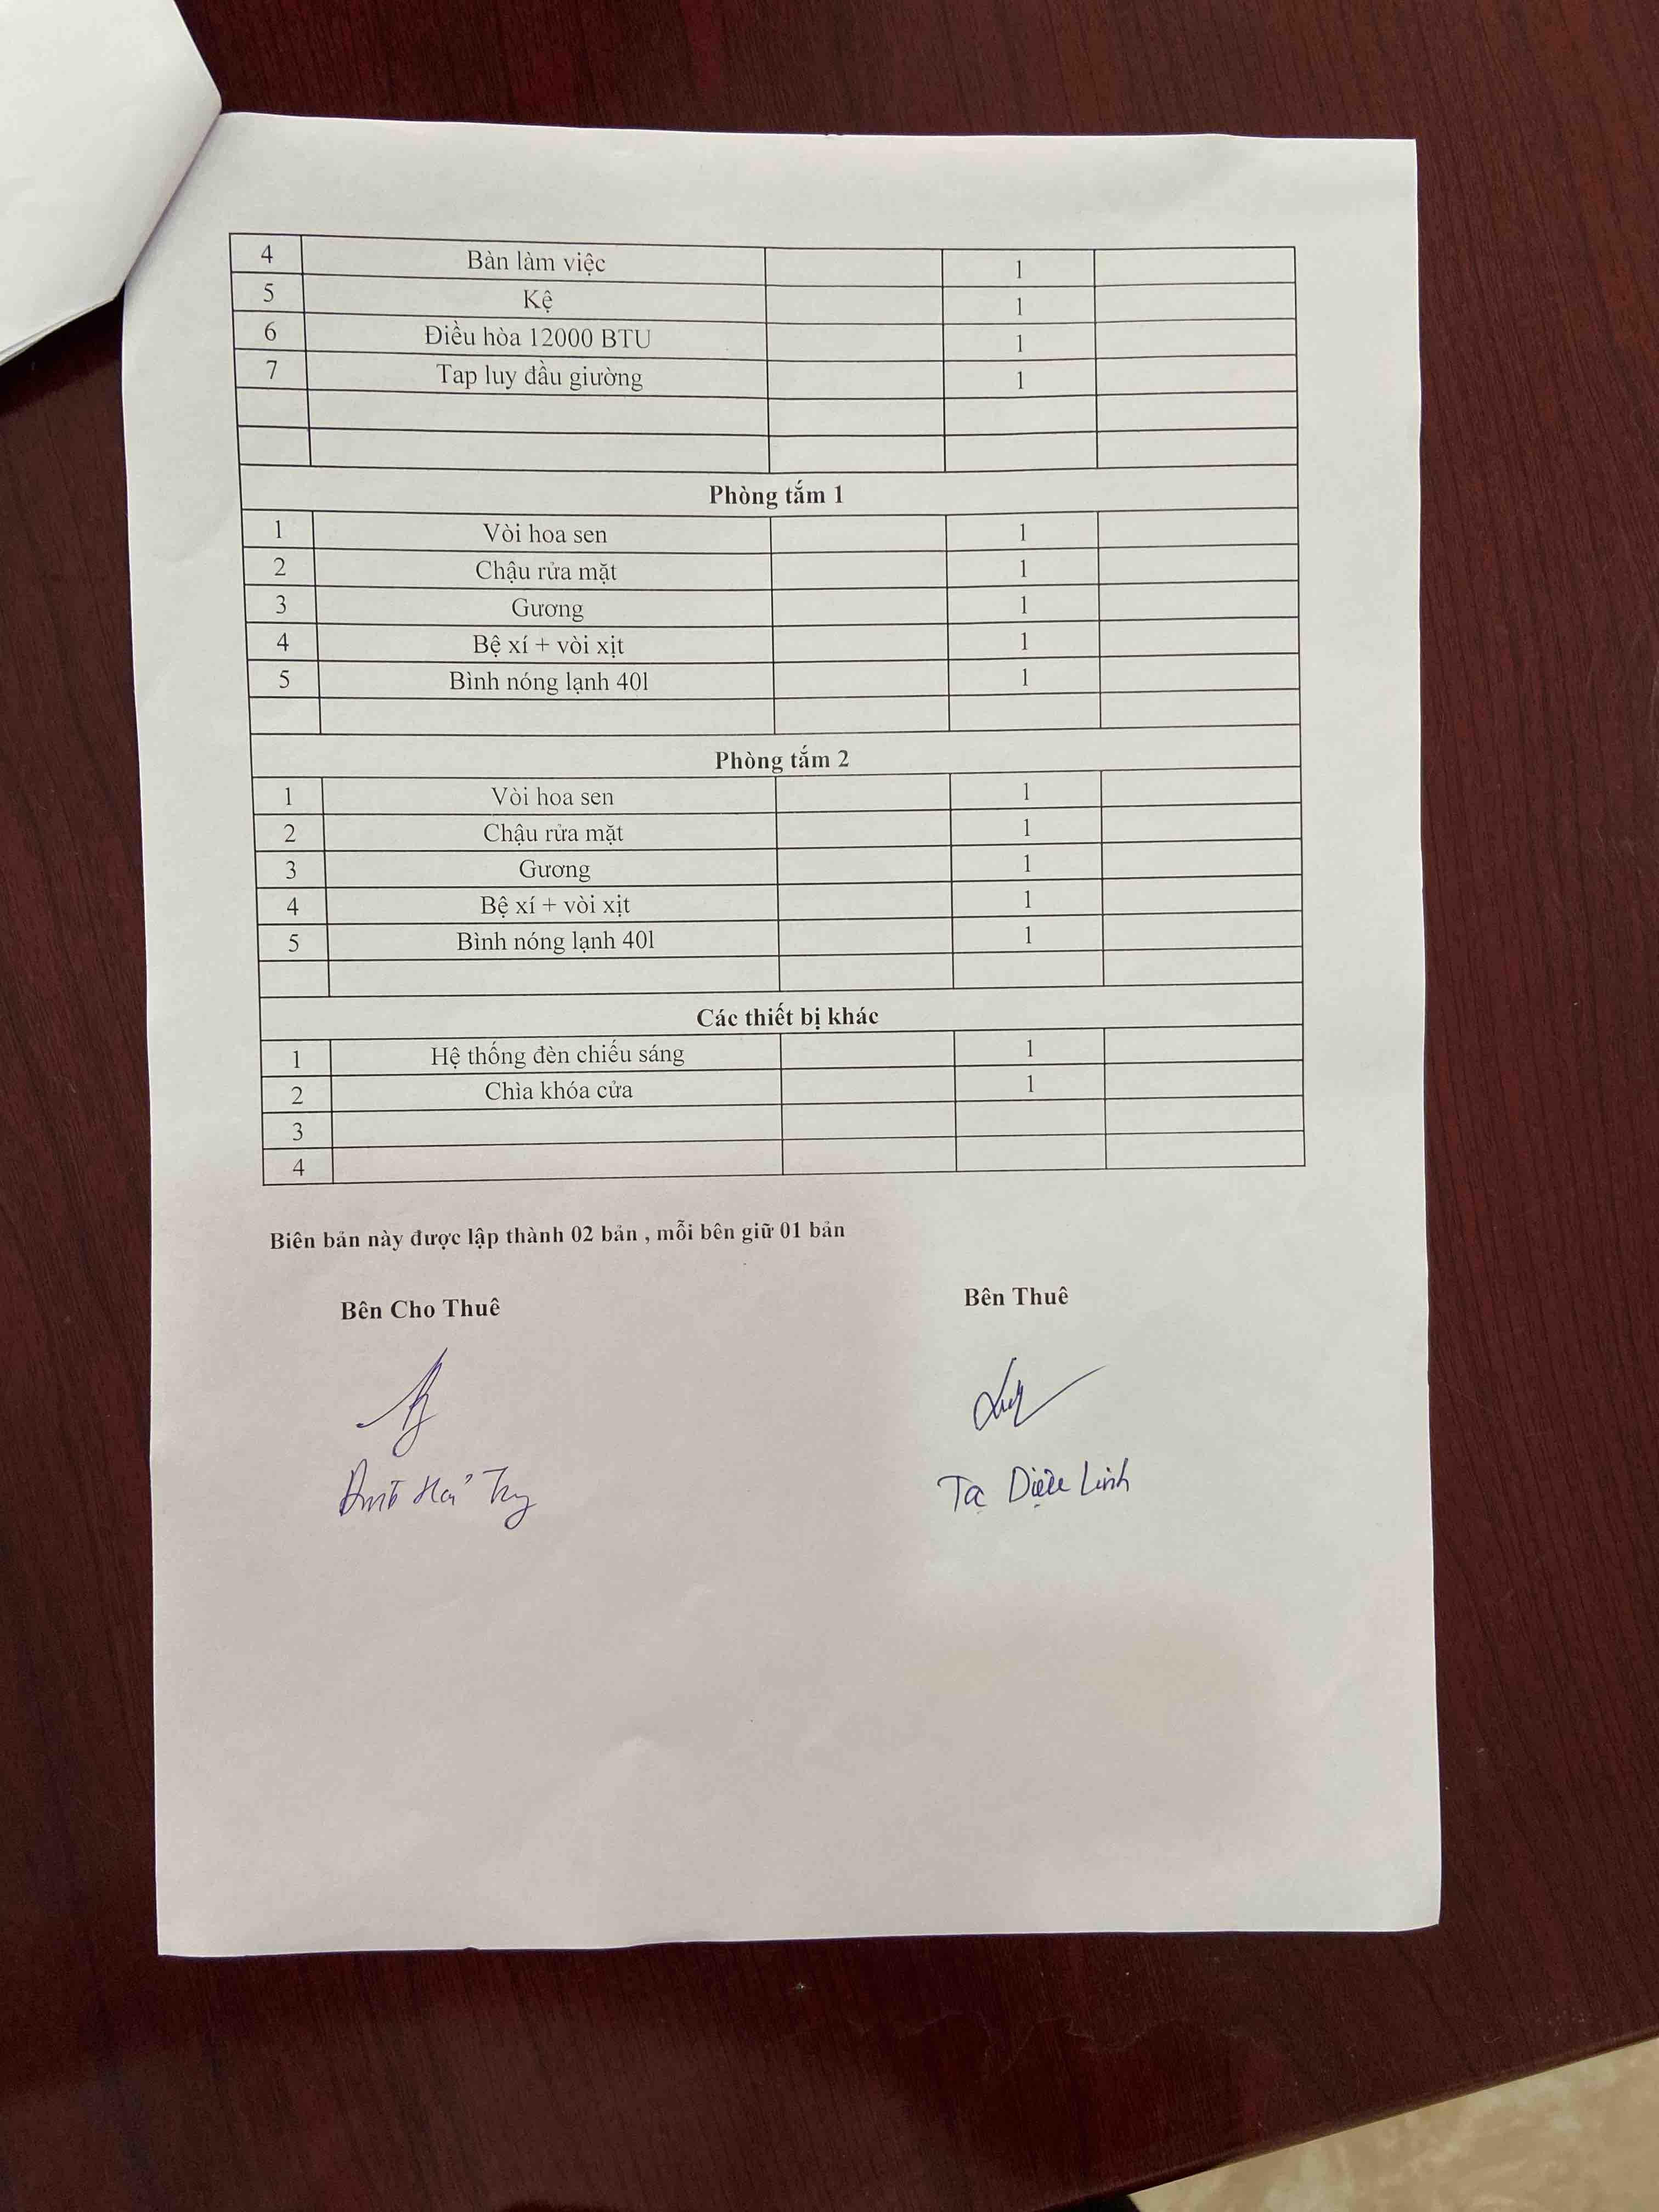 4 Bàn làm việc 1
5 Kệ 1
6 Điều hòa 12000 BTU 1
7 Tap luy đầu giường 1
Phòng tắm 1
1 Vòi hoa sen 1
2 Chậu rửa mặt 1
3 Gương 1
4 Bệ xí + vòi xịt 1
5 Bình nóng lạnh 40l 1
Phòng tắm 2
1 Vòi hoa sen 1
2 Chậu rửa mặt 1
3 Gương 1
4 Bệ xí + vòi xịt 1
5 Bình nóng lạnh 40l 1
Các thiết bị khác
1 Hệ thống đèn chiếu sáng 1
2 Chìa khóa cửa 1
3
4
Biên bản này được lập thành 02 bản , mỗi bên giữ 01 bản
Bên Cho Thuê Bên Thuê
Tạ Diệu Linh